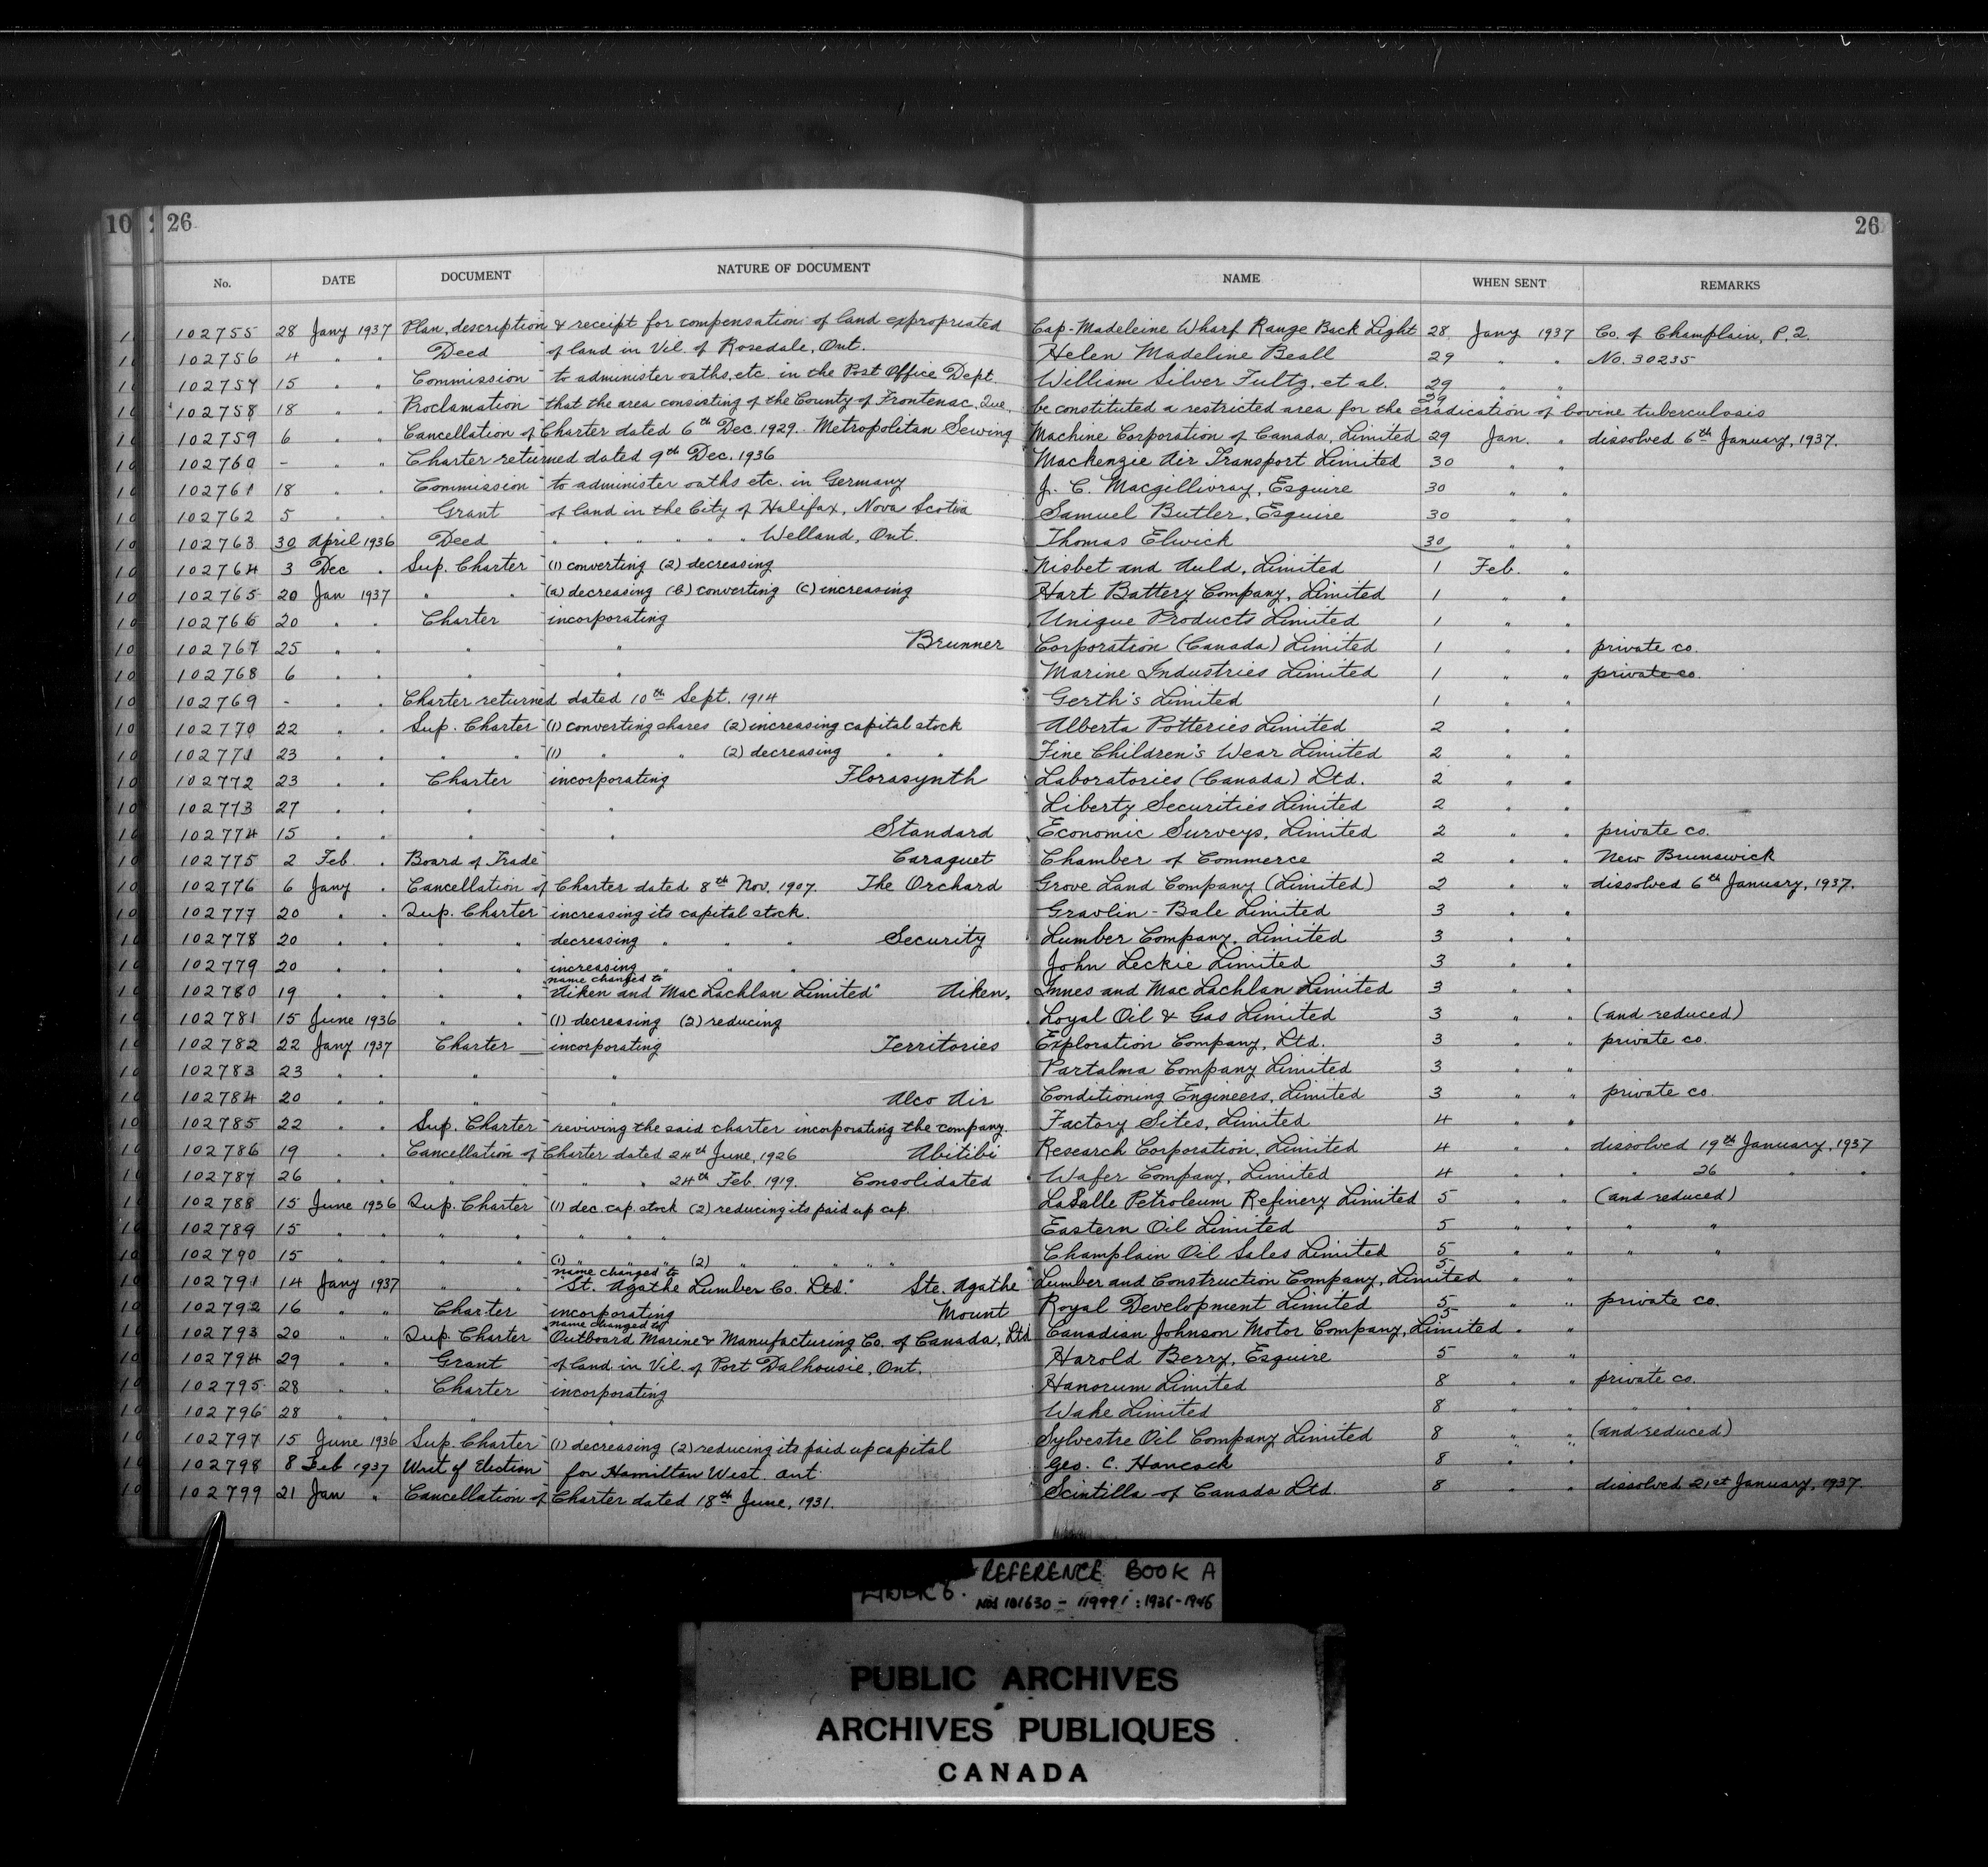 10 26 26
No. DATE DOCUMENT NATURE OF DOCUMENT NAME WHEN SENT REMARKS
102755 28 Jany 1937 Plan, description & receipt for compensation of land expropriated Cap-Madeleine Wharf Range Back Light 28 Jany 1937 Co. of Champlain, P.Q.
102756 4 " " Deed of land in Vil. of Rosedale, Ont. Helen Madeline Beall 29 " " No. 30235
102757 15 " " Commission to administer oaths, etc. in the Post Office Dept. William Silver Fultz, et al. 29 " "
102758 18 " " Proclamation that the area consisting of the County of Frontenac, Que. be constituted a restricted area for the eradication of bovine tuberculosis 29
102759 6 " " Cancellation of Charter dated 6th Dec. 1929. Metropolitan Sewing Machine Corporation of Canada, Limited 29 Jan. " dissolved 6th January, 1937.
102760 - " " Charter returned dated 9th Dec. 1936 Mackenzie Air Transport Limited 30 " "
102761 18 " " Commission to administer oaths etc. in Germany J. C. Macgillivray, Esquire 30 " "
102762 5 " " Grant of land in the City of Halifax, Nova Scotia Samuel Butler, Esquire 30 " "
102763 30 April 1936 Deed " " " " " " Welland, Ont. Thomas Elwick 30 " "
102764 3 Dec " Sup. Charter (1) converting (2) decreasing Nisbet and Auld, Limited 1 Feb. "
102765 20 Jan 1937 " " (a) decreasing (b) converting (c) increasing Hart Battery Company, Limited 1 " "
102766 20 " " Charter incorporating Unique Products Limited 1 " "
102767 25 " " " " Brunner Corporation (Canada) Limited 1 " " private co.
102768 6 " " " " Marine Industries Limited 1 " " private co.
102769 - " " Charter returned dated 10th Sept. 1914 Gerth's Limited 1 " "
102770 22 " " Sup. Charter (1) converting shares (2) increasing capital stock Alberta Potteries Limited 2 " "
102771 23 " " " " (1) " " (2) decreasing " " Fine Children's Wear Limited 2 " "
102772 23 " " Charter incorporating Florasynth Laboratories (Canada) Ltd. 2 " "
102773 27 " " " " Liberty Securities Limited 2 " "
102774 15 " " " " Standard Economic Surveys, Limited 2 " " private co.
102775 2 Feb. " Board of Trade Caraquet Chamber of Commerce 2 " " New Brunswick
102776 6 Jany " Cancellation of Charter dated 8th Nov. 1907. The Orchard Grove Land Company (Limited) 2 " " dissolved 6th January, 1937.
102777 20 " " Sup. Charter increasing its capital stock. Gravlin-Bale Limited 3 " "
102778 20 " " " " decreasing " " " Security Lumber Company, Limited 3 " "
102779 20 " " " " increasing " " " John Leckie Limited 3 " "
name changed to
102780 19 " " " " "Aiken and MacLachlan Limited" Aiken, Innes and MacLachlan Limited 3 " "
102781 15 June 1936 " " (1) decreasing (2) reducing Loyal Oil & Gas Limited 3 " " (and reduced)
102782 22 Jany 1937 Charter incorporating Territories Exploration Company, Ltd. 3 " " private co.
102783 23 " " " " Partalma Company Limited 3 " "
102784 20 " " " " Alco Air Conditioning Engineers, Limited 3 " " private co.
102785 22 " " Sup. Charter reviving the said charter incorporating the company. Factory Sites, Limited 4 " "
102786 19 " " Cancellation of Charter dated 24th June, 1926 Abitibi Research Corporation, Limited 4 " " dissolved 19th January, 1937
102787 26 " " " " " 24th Feb. 1919. Consolidated Wafer Company, Limited 4 " " " 26 " "
102788 15 June 1936 Sup. Charter (1) dec. cap. stock (2) reducing its paid up cap. LaSalle Petroleum Refinery Limited 5 " " (and reduced)
102789 15 " " " " " " " " Eastern Oil Limited 5 " " " "
102790 15 " " " " (1) " " " (2) " " " " " Champlain Oil Sales Limited 5 " " " "
name changed to
102791 14 Jany 1937 " " "St. Agathe Lumber Co. Ltd." Ste. Agathe Lumber and Construction Company, Limited 5 " "
102792 16 " " Charter incorporating Mount Royal Development Limited 5 " " private co.
name changed to
102793 20 " " Sup. Charter Outboard Marine & Manufacturing Co. of Canada, Ltd Canadian Johnson Motor Company, Limited 5 " "
102794 29 " " Grant of land in Vil. of Port Dalhousie, Ont. Harold Berry, Esquire 5 " "
102795 28 " " Charter incorporating Hanorum Limited 8 " " private co.
102796 28 " " " " Wake Limited 8 " " " "
102797 15 June 1936 Sup. Charter (1) decreasing (2) reducing its paid up capital Sylvestre Oil Company Limited 8 " " (and reduced)
102798 8 Feb 1937 Writ of Election for Hamilton West. Ont. Geo. C. Hancock 8 " "
102799 21 Jan " Cancellation of Charter dated 18th June, 1931. Scintilla of Canada Ltd. 8 " " dissolved 21st January, 1937.
REFERENCE BOOK A
PUBLIC ARCHIVES
ARCHIVES PUBLIQUES
CANADA